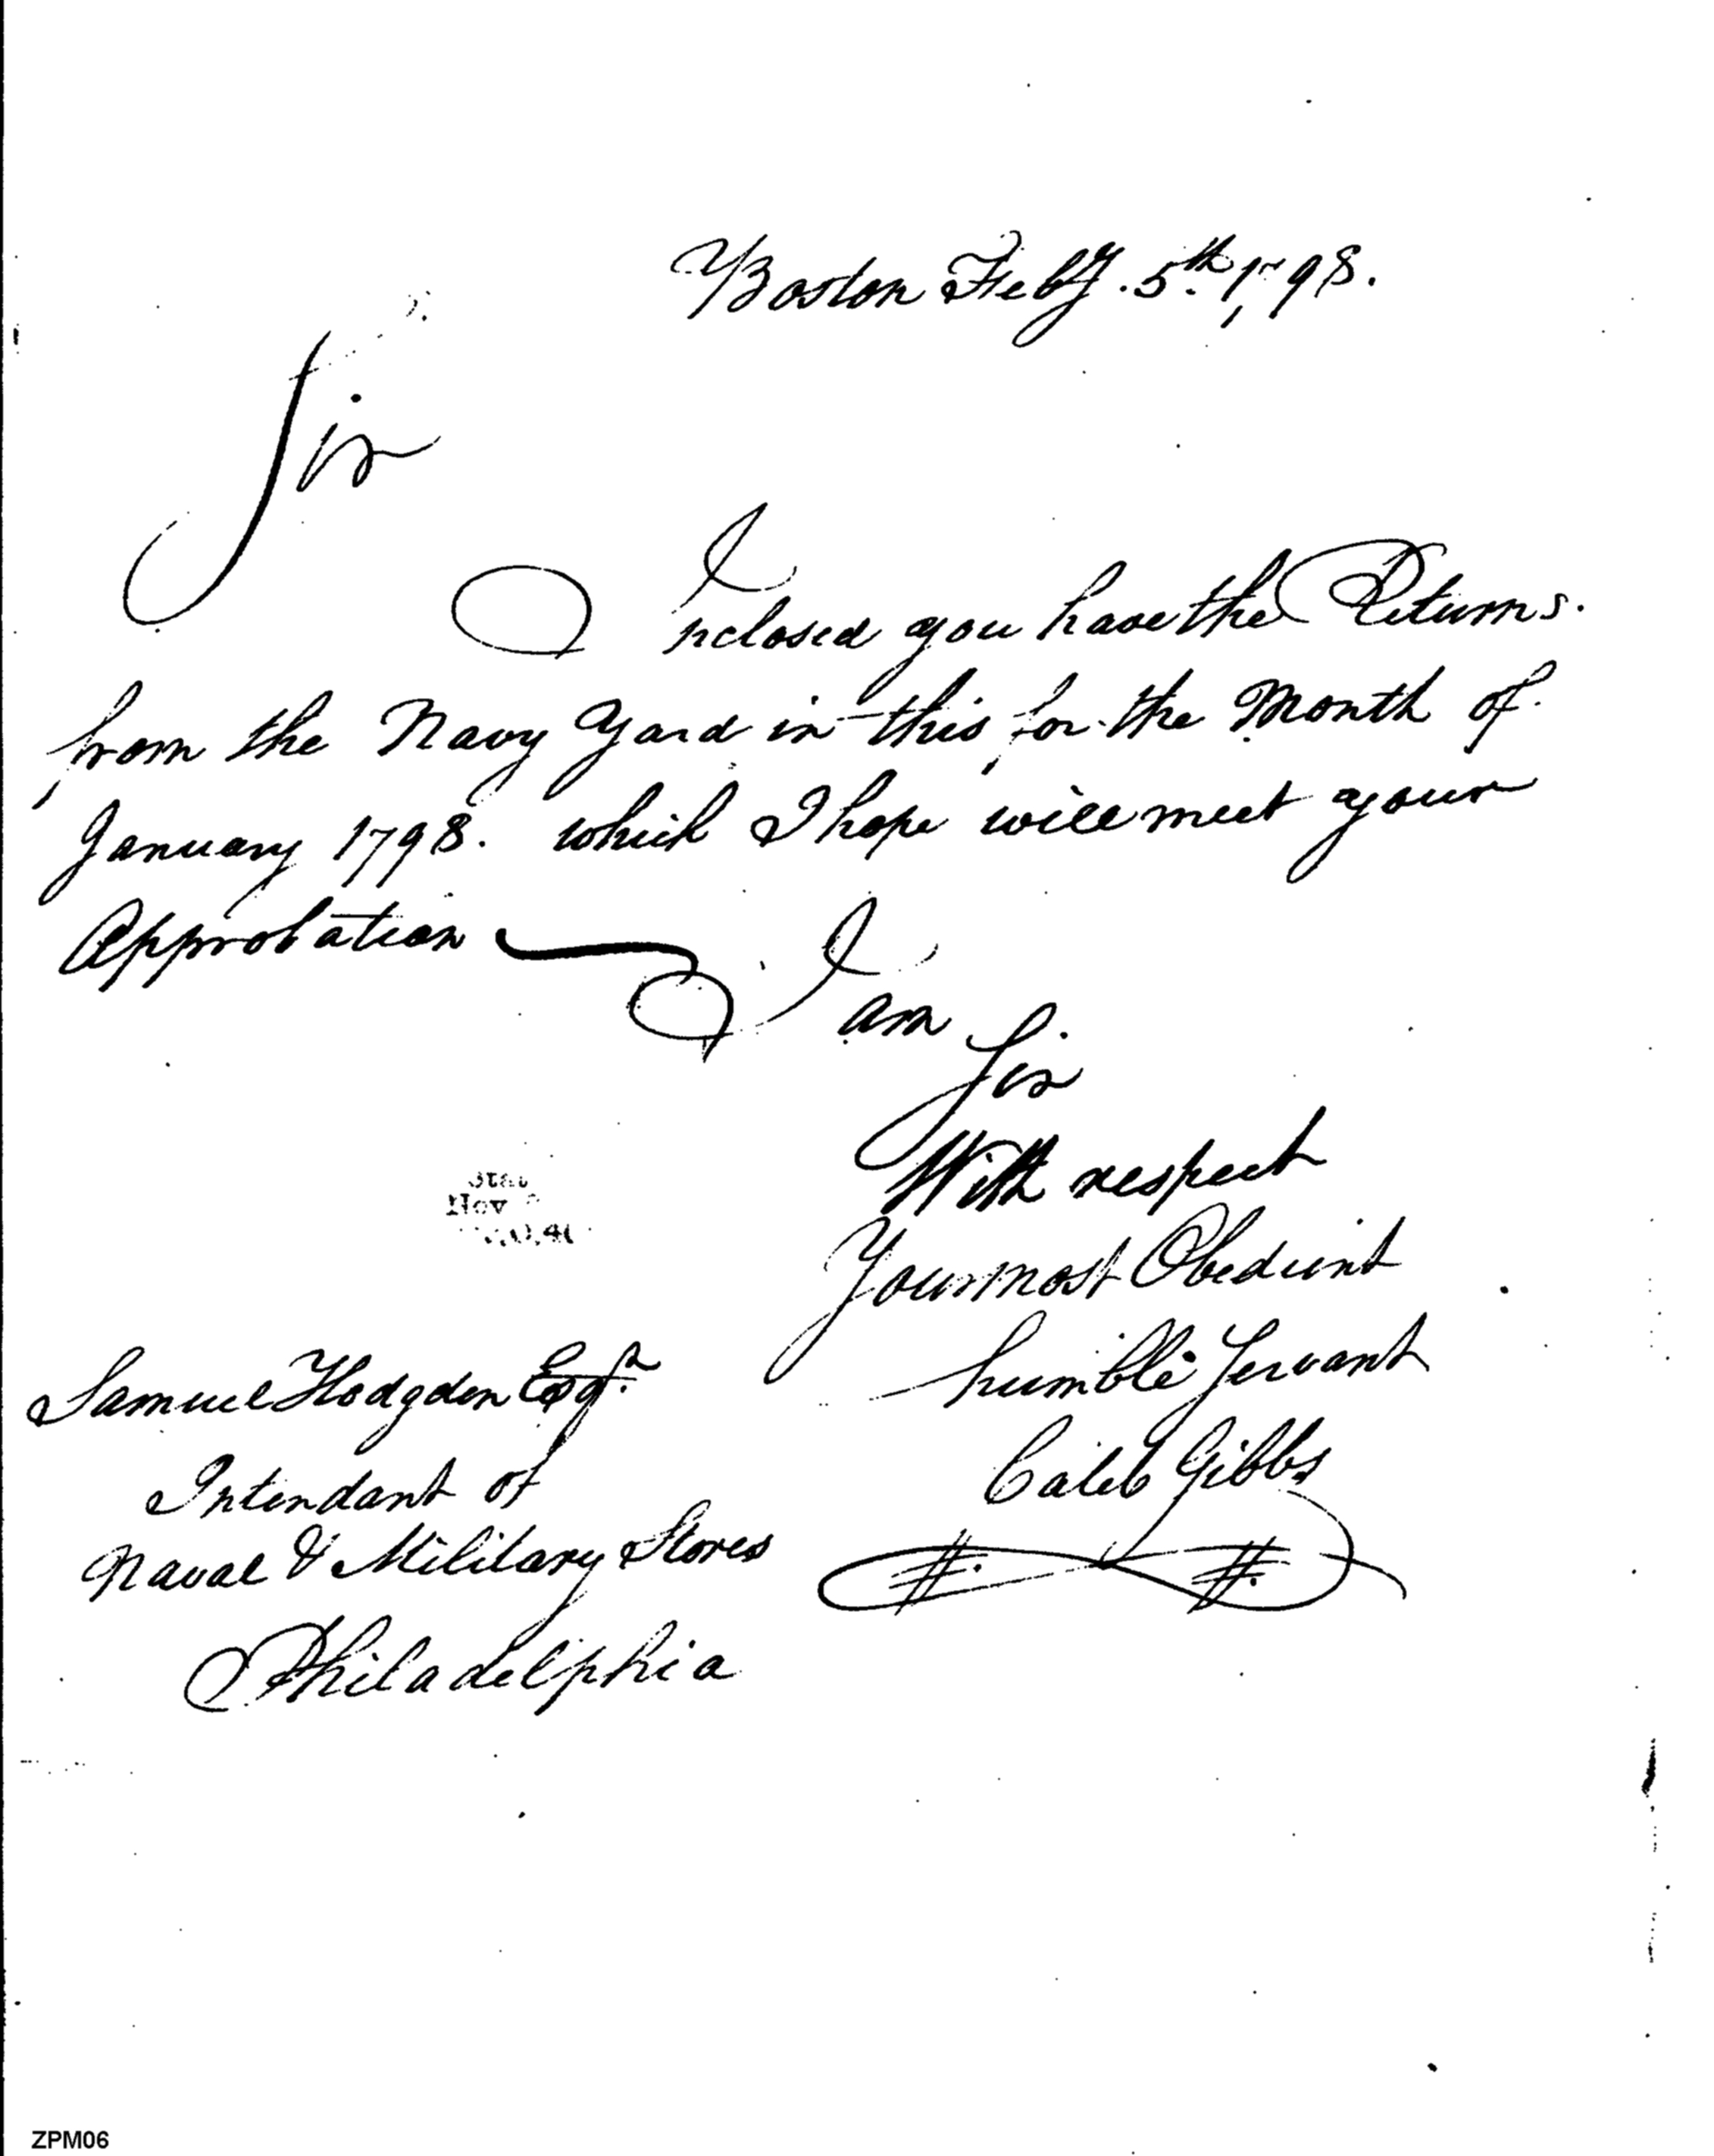 Boston Feby. 5th. 1798.
Sir
Inclosed you have the Returns.
from the Navy Yard in this, for the Month of
January 1798. which I hope will meet your
Approbation
I am
Sir
With respect
Your most Obedient
humble Servant
Caleb Gibbs
Samuel Hodgden Esqr.
Intendant of
Naval & Military Stores
Philadelphia
Nov
ZPM06